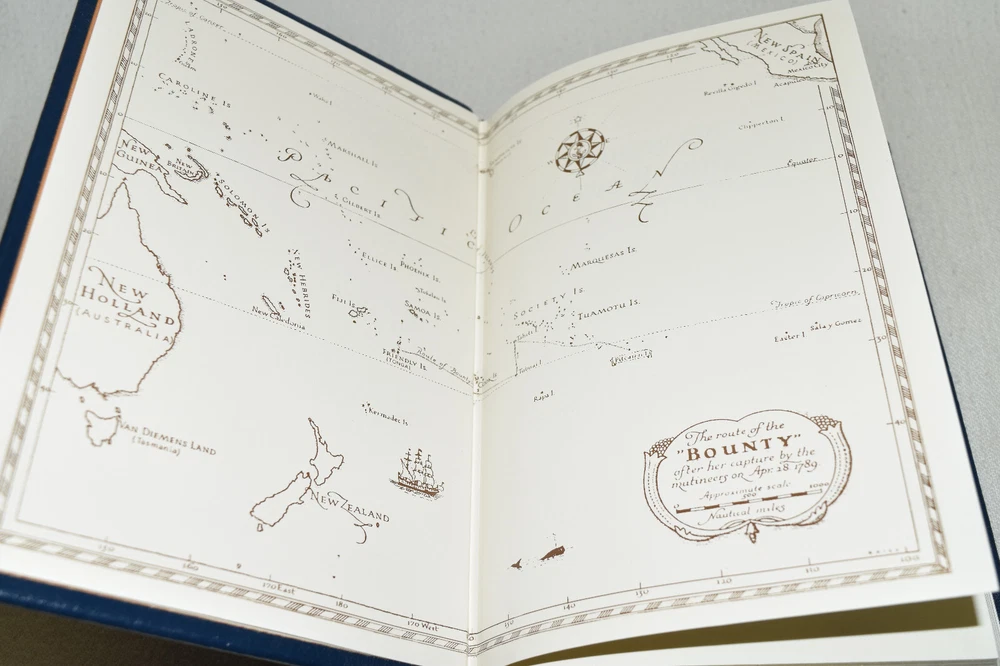 Tropic of Cancer
LADRONE
CAROLINE Is.
Wake I.
MARSHALL Is.
PACIFIC
GILBERT Is.
NEW
GUINEA
NEW
BRITAIN
SOLOMON IS
ELLICE Is.
PHOENIX Is.
NEW HEBRIDES
Tokelau Is.
FIJI Is.
SAMOA Is.
New Caledonia
NEW
HOLLAND
(AUSTRALIA)
FRIENDLY Is.
(TONGA)
Route of Bounty
Kermadec Is.
VAN DIEMENS LAND
(Tasmania)
NEW ZEALAND
150
160
170 East
180
170 West
NEW SPAIN
(MEXICO)
Mexico City
Acapulco
Revilla Gigedo I.
Clipperton I.
Equator
OCEAN
MARQUESAS Is.
SOCIETY Is.
TUAMOTU Is.
Tahiti I.
Tubuai I.
Tropic of Capricorn
Pitcairn I.
Easter I.
Sala y Gomez
Rapa I.
10
0
10
20
30
40
The route of the
"BOUNTY"
after her capture by the
mutineers on Apr. 28 1789
Approximate scale
0 500 1000
Nautical miles
150
140
130
120
110
100